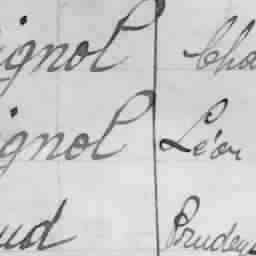 ignol Cha
ignol Léon
ud Pruden